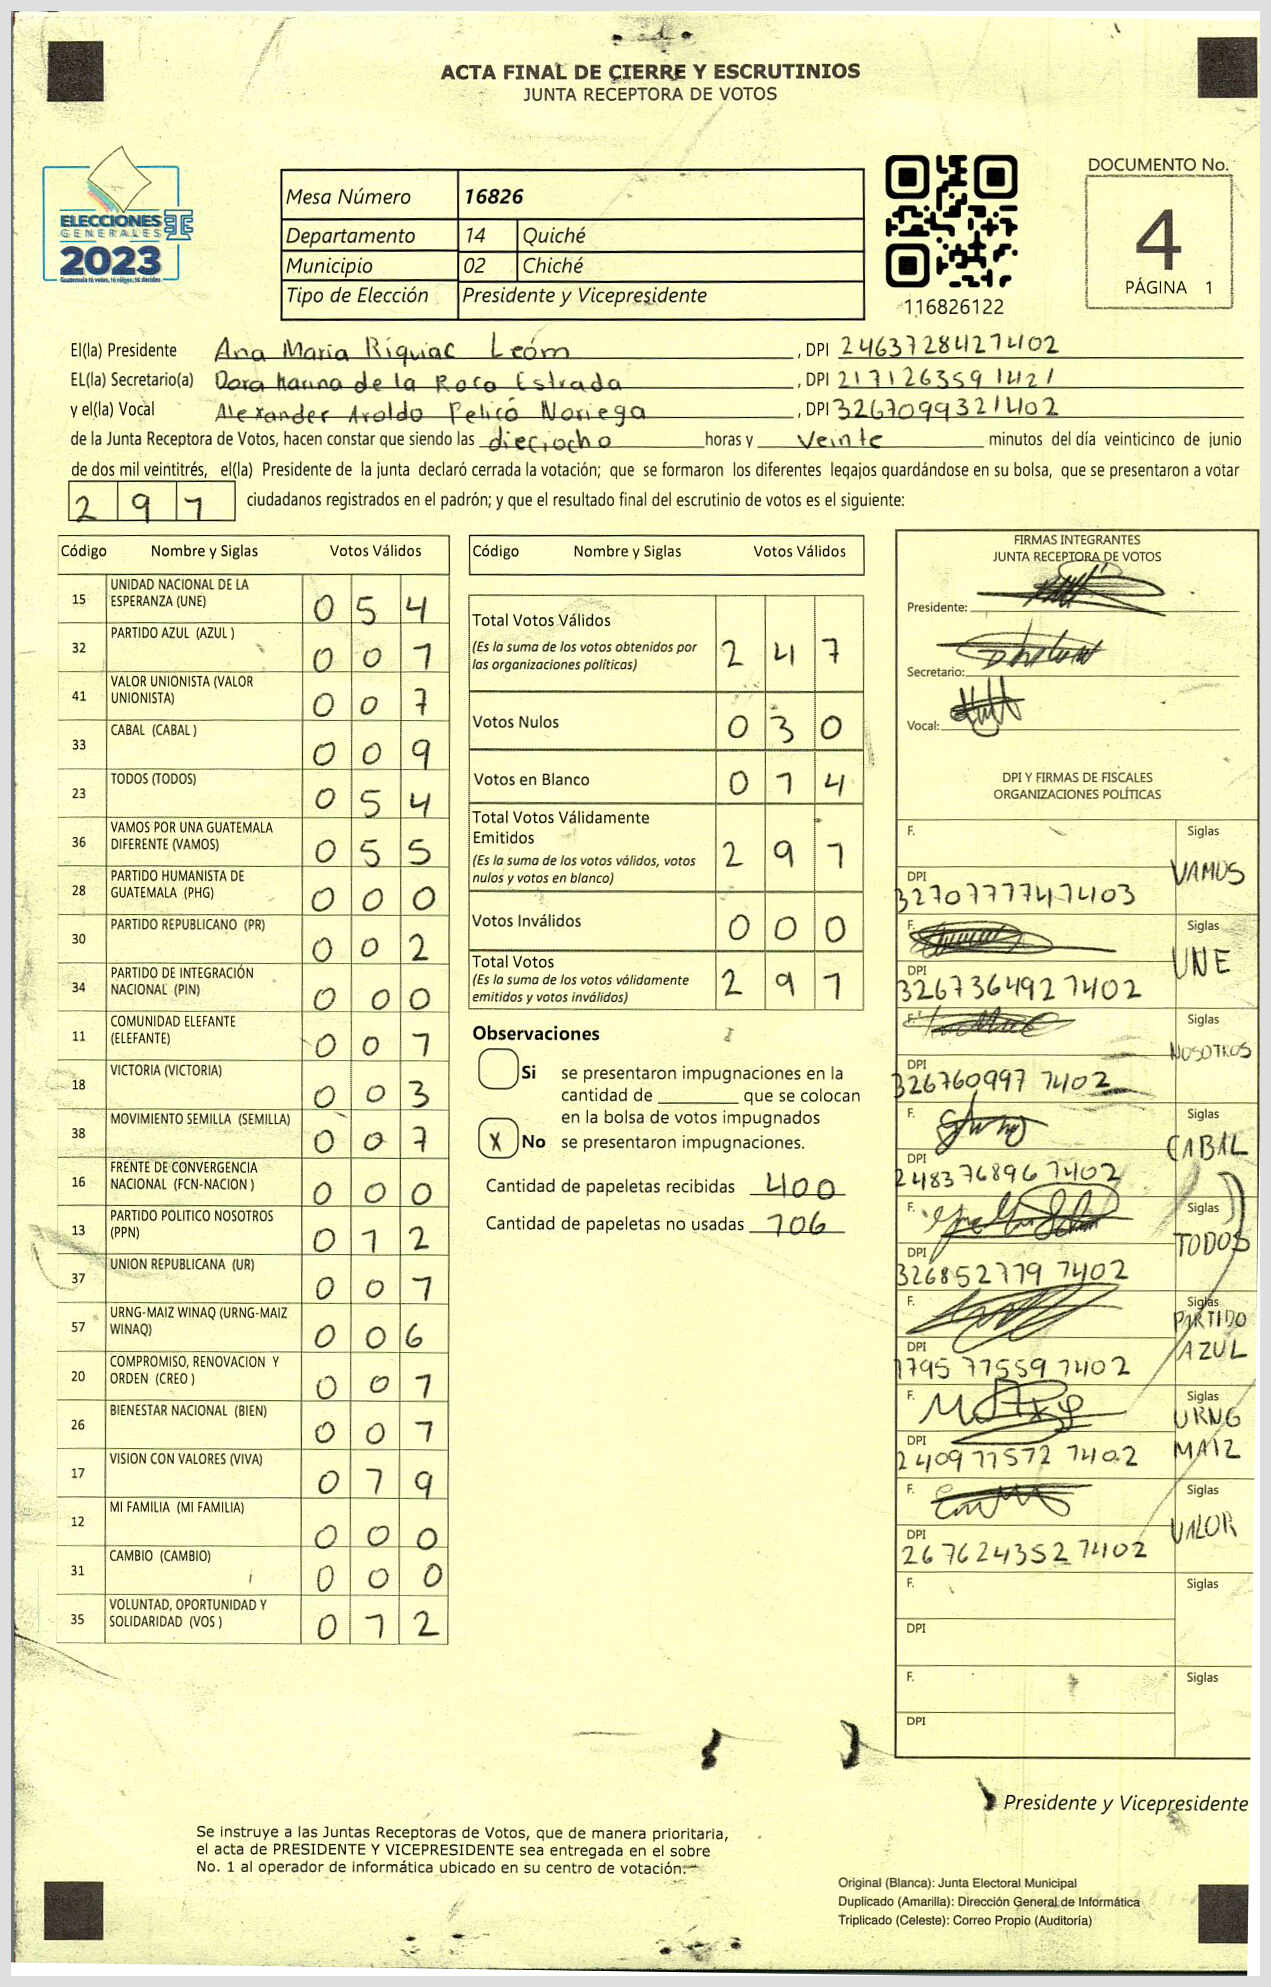 ACTA FINAL DE CIERRE Y ESCRUTINIOS
JUNTA RECEPTORA DE VOTOS
ELECCIONES
GENERALES
2023
Mesa Número 16826
Departamento 14 Quiché
Municipio 02 Chiché
Tipo de Elección Presidente y Vicepresidente
116826122
DOCUMENTO No.
4
PÁGINA 1
El(la) Presidente Ana Maria Riquiac León, DPI 2463728421402
EL(la) Secretario(a) Dora Karina de la Roca Estrada, DPI 2171263591421
y el(la) Vocal Alexander Aroldo Pelicó Noriega, DPI 3267099321402
de la Junta Receptora de Votos, hacen constar que siendo las dieciocho horas y veinte minutos del día veinticinco de junio
de dos mil veintitrés, el(la) Presidente de la junta declaró cerrada la votación; que se formaron los diferentes legajos guardándose en su bolsa, que se presentaron a votar
291 ciudadanos registrados en el padrón; y que el resultado final del escrutinio de votos es el siguiente:
Código Nombre y Siglas Votos Válidos
15 UNIDAD NACIONAL DE LA ESPERANZA (UNE) 054
32 PARTIDO AZUL (AZUL ) 001
41 VALOR UNIONISTA (VALOR UNIONISTA) 007
33 CABAL (CABAL ) 009
23 TODOS (TODOS) 054
36 VAMOS POR UNA GUATEMALA DIFERENTE (VAMOS) 055
28 PARTIDO HUMANISTA DE GUATEMALA (PHG) 000
30 PARTIDO REPUBLICANO (PR) 002
34 PARTIDO DE INTEGRACIÓN NACIONAL (PIN) 000
11 COMUNIDAD ELEFANTE (ELEFANTE) 001
18 VICTORIA (VICTORIA) 003
38 MOVIMIENTO SEMILLA (SEMILLA) 007
16 FRENTE DE CONVERGENCIA NACIONAL (FCN-NACION ) 000
13 PARTIDO POLITICO NOSOTROS (PPN) 012
37 UNION REPUBLICANA (UR) 001
57 URNG-MAIZ WINAQ (URNG-MAIZ WINAQ) 006
20 COMPROMISO, RENOVACION Y ORDEN (CREO ) 001
26 BIENESTAR NACIONAL (BIEN) 001
17 VISION CON VALORES (VIVA) 019
12 MI FAMILIA (MI FAMILIA) 000
31 CAMBIO (CAMBIO) 000
35 VOLUNTAD, OPORTUNIDAD Y SOLIDARIDAD (VOS ) 012
Código Nombre y Siglas Votos Válidos
Total Votos Válidos 247
(Es la suma de los votos obtenidos por
las organizaciones políticas)
Votos Nulos 030
Votos en Blanco 014
Total Votos Válidamente
Emitidos 291
(Es la suma de los votos válidos, votos
nulos y votos en blanco)
Votos Inválidos 000
Total Votos 291
(Es la suma de los votos válidamente
emitidos y votos inválidos)
Observaciones
Si se presentaron impugnaciones en la
cantidad de ________ que se colocan
en la bolsa de votos impugnados
X No se presentaron impugnaciones.
Cantidad de papeletas recibidas 400
Cantidad de papeletas no usadas 106
FIRMAS INTEGRANTES
JUNTA RECEPTORA DE VOTOS
Presidente:
Secretario:
Vocal:
DPI Y FIRMAS DE FISCALES
ORGANIZACIONES POLÍTICAS
F. Siglas
DPI VAMOS
F. Siglas
DPI 326736492 1402 UNE
F. Siglas
DPI 326760997 1402 NOSOTROS
F. Siglas
DPI 248376896 1402 CABAL
F. Siglas
DPI TODOS
F. Siglas
DPI PARTIDO AZUL
F. Siglas
DPI URNG MAIZ
F. Siglas
DPI 267624352 1402 VALOR
F. Siglas
DPI
F. Siglas
DPI
Presidente y Vicepresidente
Se instruye a las Juntas Receptoras de Votos, que de manera prioritaria,
el acta de PRESIDENTE Y VICEPRESIDENTE sea entregada en el sobre
No. 1 al operador de informática ubicado en su centro de votación.
Original (Blanca): Junta Electoral Municipal
Duplicado (Amarilla): Dirección General de Informática
Triplicado (Celeste): Correo Propio (Auditoría)